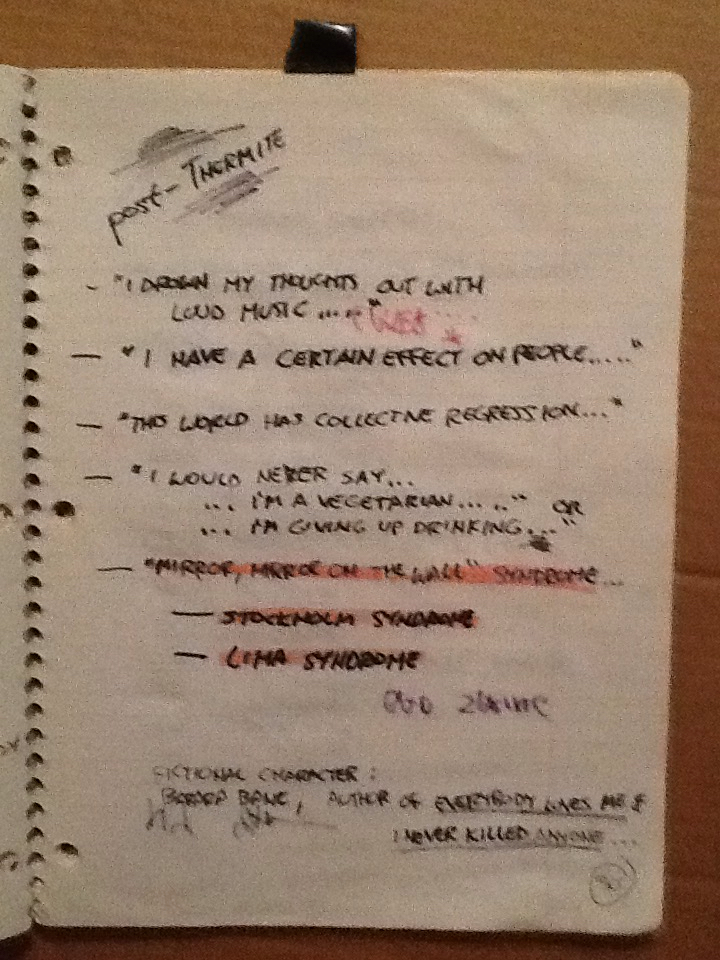 post-THERMITE
- "I DROWN MY THOUGHTS OUT WITH
LOUD MUSIC...."
— "I HAVE A CERTAIN EFFECT ON PEOPLE....."
— "THIS WORLD HAS COLLECTIVE REGRESSION..."
— "I WOULD NEVER SAY...
... I'M A VEGETARIAN....." OR
... I'M GIVING UP DRINKING..."
— "MIRROR, MIRROR ON THE WALL" SYNDROME...
— STOCKHOLM SYNDROME
— LIMA SYNDROME
FICTIONAL CHARACTER:
AUTHOR OF EVERYBODY LIKES ME &
I NEVER KILLED ANYONE...